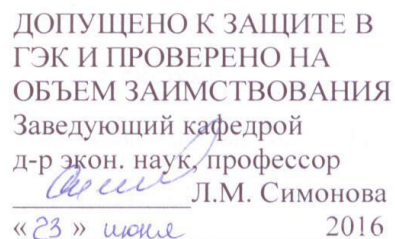 ДОПУЩЕНО К ЗАЩИТЕ В
ГЭК И ПРОВЕРЕНО НА
ОБЪЕМ ЗАИМСТВОВАНИЯ
Заведующий кафедрой
д-р экон. наук, профессор
Л.М. Симонова
« 23 » июня 2016